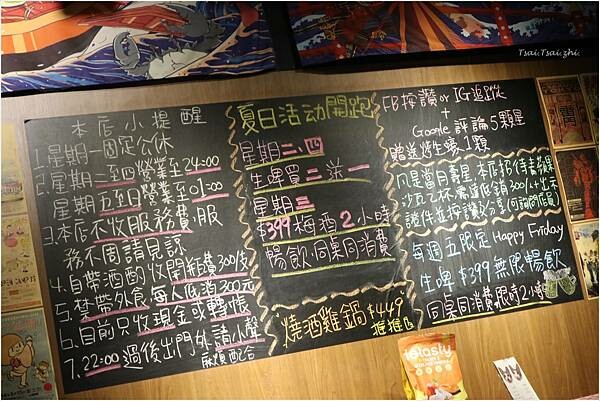 Tsai.Tsai.zhi.
本店小提醒
1.星期一固定公休
2.星期二至四營業至24:00
星期五至日營業至01:00
3.本店不收服務費,服
務不周請見諒
4.自帶酒酌收開瓶費300/支
5.禁帶外食每人低消300元
6.目前只收現金或轉帳
7.22:00過後出門外請小聲
麻煩配合
夏日活动開跑
星期二、四
生啤買二送一
星期三
$399梅酒2小時
暢飲,同桌同消費
燒酒雞鍋$449
推推
FB按讚or IG追蹤
+
Google評論5顆星
贈送炸生蠔1顆
凡是當月壽星,本店招待青蘋果
沙瓦乙杯,需達低銷300/人,出示
證件並按讚分享(可詢問店員)
每週五限定Happy Friday
生啤$399無限暢飲
同桌同消費,限時2小時
totasty